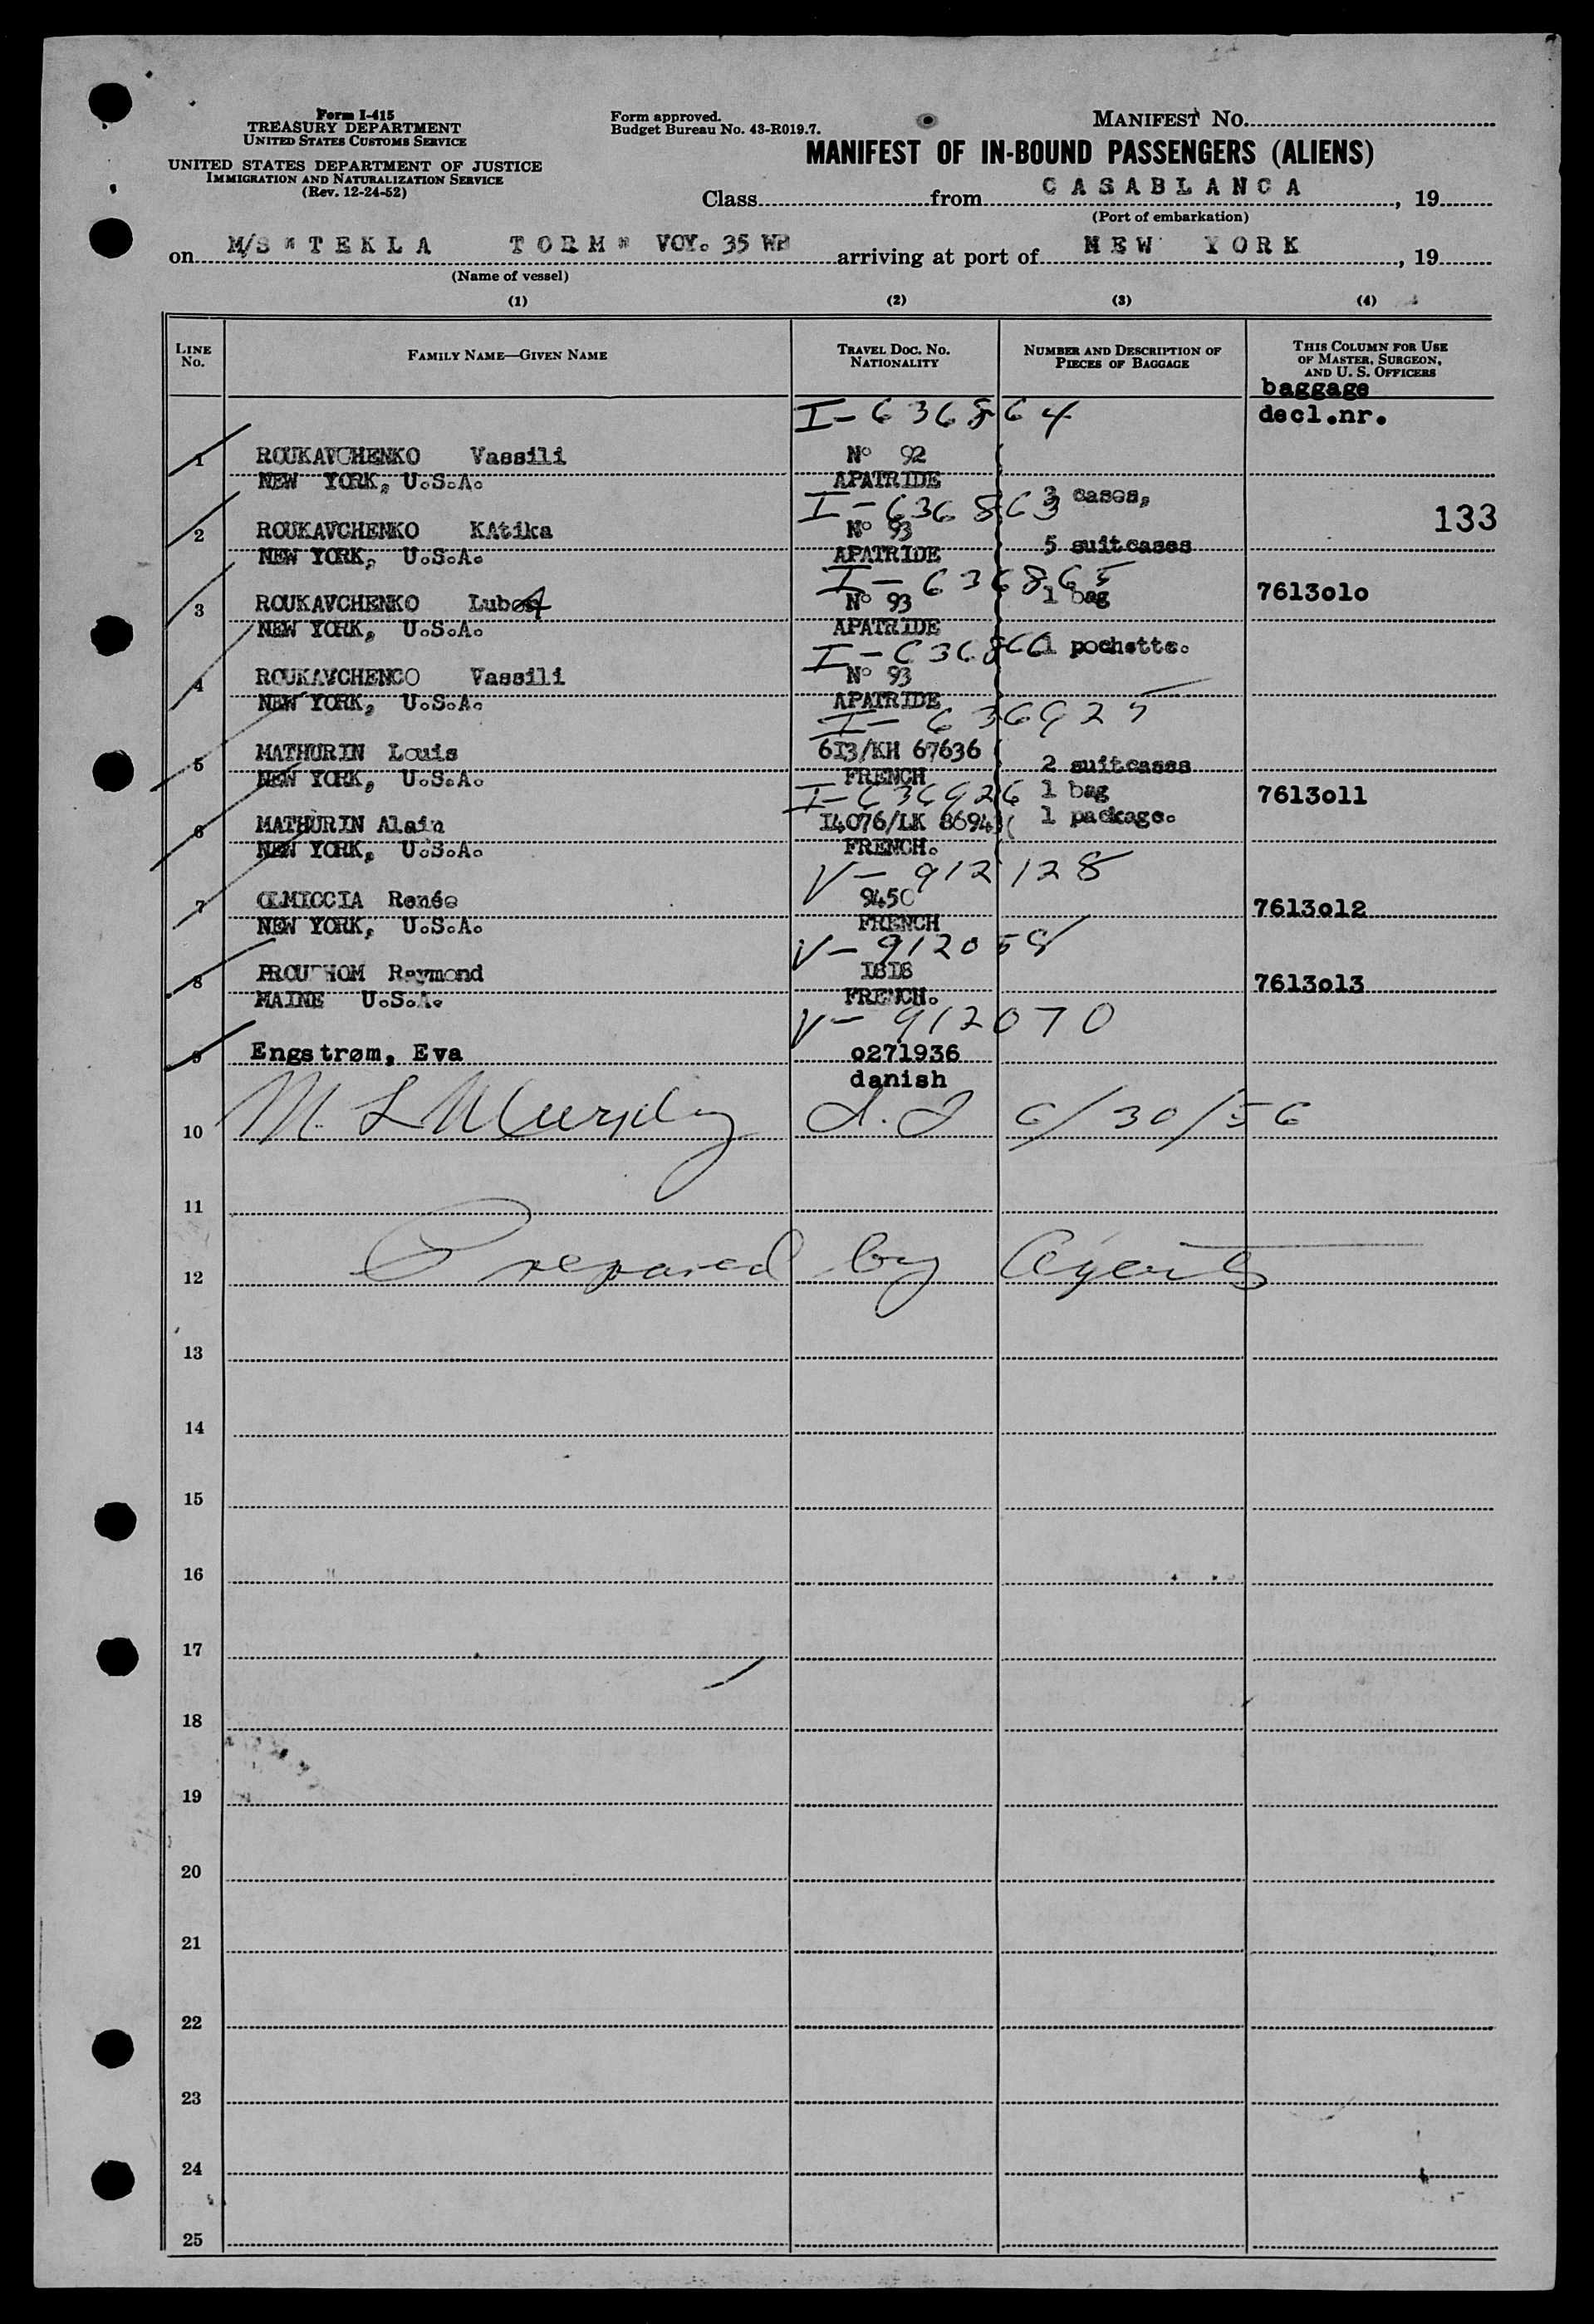 Form I-415
TREASURY DEPARTMENT
UNITED STATES CUSTOMS SERVICE
UNITED STATES DEPARTMENT OF JUSTICE
IMMIGRATION AND NATURALIZATION SERVICE
(Rev. 12-24-52)
Form approved.
Budget Bureau No. 43-R019.7.
MANIFEST No.
MANIFEST OF IN-BOUND PASSENGERS (ALIENS)
Class from CASABLANCA, 19
(Port of embarkation)
on M/S "TEKLA TORM" VOY. 35 WB arriving at port of NEW YORK, 19
(Name of vessel)
(1) (2) (3) (4)
LINE No. FAMILY NAME—GIVEN NAME TRAVEL DOC. NO. NATIONALITY NUMBER AND DESCRIPTION OF PIECES OF BAGGAGE THIS COLUMN FOR USE OF MASTER, SURGEON, AND U. S. OFFICERS
baggage
I-636864 decl.nr.
1 ROUKAVCHENKO Vassili No 92
NEW YORK, U.S.A. APATRIDE
I-636863 3 cases,
2 ROUKAVCHENKO KAtika No 93 133
NEW YORK, U.S.A. APATRIDE 5 suitcases
I-636865
3 ROUKAVCHENKO No 93 1 bag 7613o1o
NEW YORK, U.S.A. APATRIDE
I-636866 1 pochette.
4 ROUKAVCHENCO Vassili No 93
NEW YORK, U.S.A. APATRIDE
I-636925
5 MATHURIN Louis 6I3/KH 67636 2 suitcases
NEW YORK, U.S.A. FRENCH
I-636926 1 bag 7613o11
6 MATHURIN Alain I4076/LK 86943 1 package.
NEW YORK, U.S.A. FRENCH.
V-912128
7 OLMICCIA Renée 9450 7613o12
NEW YORK, U.S.A. FRENCH
V-912058
8 PROUDHOM Raymond I8I8 7613o13
MAINE U.S.A. FRENCH.
V-912070
9 Engstrøm, Eva o271936
danish
10 M L Murphy 6/30/56
11
12 Prepared by Agents
13
14
15
16
17
18
19
20
21
22
23
24
25